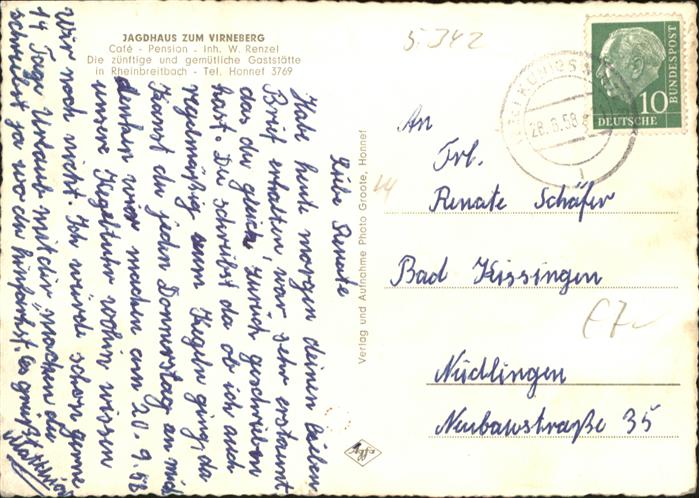 JAGDHAUS ZUM VIRNEBERG
Café - Pension - Inh. W. Renzel
Die zünftige und gemütliche Gaststätte
in Rheinbreitbach - Tel. Honnef 3769
Liebe Renate
Habe heute morgen deinen lieben
Brief erhalten, war sehr erstaunt
das du gleich zurück geschrieben
hast. Du schreibst da ob ich auch
regelmäßig zum Kegeln ging, da
kannst du jeden Donnerstag an mich
denken wir machen am 20.9.58
unsere Kegeltour wohin wissen
wir noch nicht. Ich würde schon gerne
14 Tage Urlaub mit dir machen du
schreibst ja wo du hinfährst. Es grüßt
Matthias
Verlag und Aufnahme Photo Groote, Honnef
Agfa
5.342
28.8.58
10
DEUTSCHE
BUNDESPOST
An
Frl.
Renate Schäfer
Bad Kissingen
Nüdlingen
Neubaustraße 35